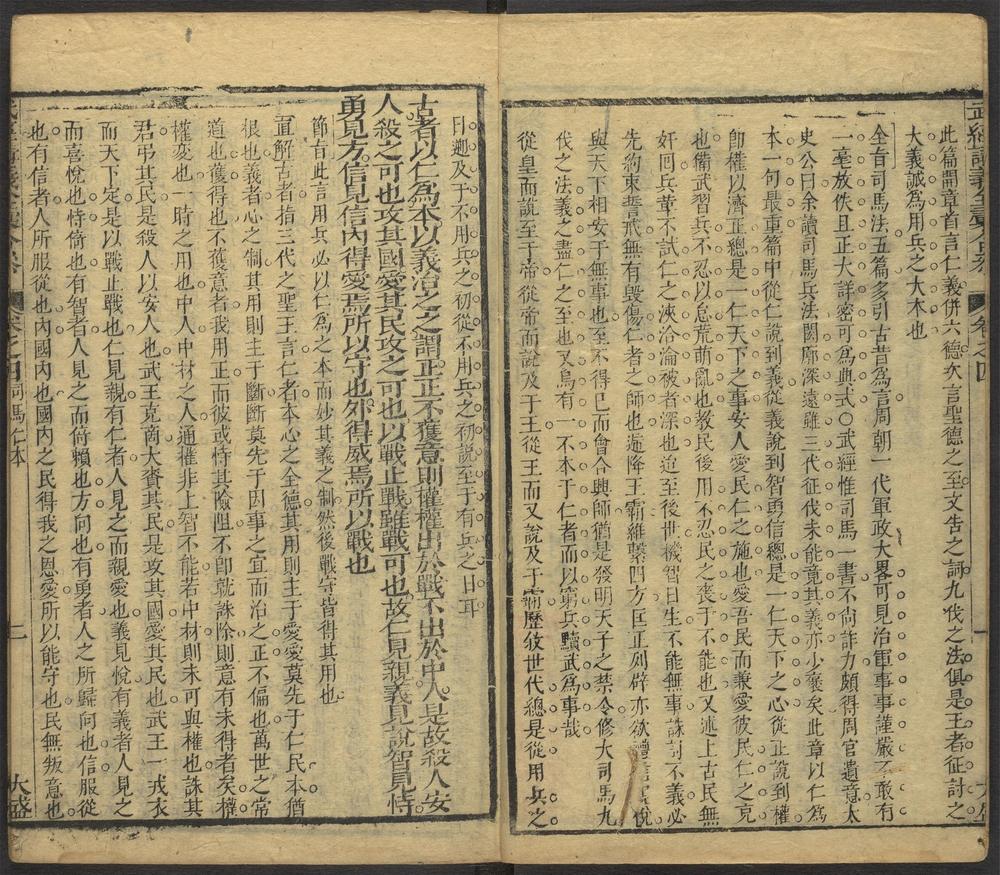 此篇開章首言仁義併六德次言聖德之至文告之詞九伐之法俱是王者征討之
大義誠為用兵之大本也
全旨司馬法五篇多引古昔為言周朝一代軍政大畧可見治軍事事謹嚴不敢有
一毫放佚且正大詳密可為典式○武經惟司馬一書不尚詐力頗得周官遺意太
史公曰余讀司馬兵法閎廓深遠雖三代征伐未能竟其義亦少褒矣此章以仁為
本一句最重篇中從仁說到義從義說到智勇信總是一仁天下之心從正說到權
卽權以濟正總是一仁天下之事安人愛民仁之施也愛吾民而兼愛彼民仁之克
也備武習兵不忍以怠荒萌亂也教民後用不忍民之喪于不能也又述上古民無
奸囘兵革不試仁之浹洽淪被者深也迨至後世機智日生不能無事誅討不義必
先約束誓戒無有毀傷仁者之師也遞降王霸維繫四方匡正列辟亦欲
與天下相安于無事也至不得已而會合興師猶是發明天子之禁令修大司馬九
伐之法義之盡仁之至也又烏有一不本于仁者而以窮兵黷武為事哉
從皇而說至于帝從帝而說及于王從王而又說及于霸歷敘世代總是從用兵之
日遡及于不用兵之初從不用兵之初說至于有兵之日耳
古者以仁為本以義治之之謂正正不獲意則權權出於戰不出於中人是故殺人安
人殺之可也攻其國愛其民攻之可也以戰止戰雖戰可也故仁見親義見說智見恃
勇見方信見信內得愛焉所以守也外得威焉所以戰也
節旨此言用兵必以仁為之本而妙其義之制然後戰守皆得其用也
直解古者指三代之聖王言仁者本心之全德其用則主于愛愛莫先于仁民本猶
根也義者心之制其用則主于斷斷莫先于因事之宜而治之正不偏也萬世之常
道也獲得也不獲意者我用正而彼或恃其險阻不卽就誅除則意有未得者矣權
權變也一時之用也中人中材之人通權非上智不能若中材則未可與權也誅其
君弔其民是殺人以安人也武王克商大賚其民是攻其國愛其民也武王一戎衣
而天下定是以戰止戰也仁見親有仁者人見之而親愛也義見悅有義者人見之
而喜悅也恃倚也有智者人見之而倚賴也方向也有勇者人之所歸向也信服從
也有信者人所服從也內國內也國內之民得我之恩愛所以能守也民無叛意也
卷之四
司馬仁本
二
大盛